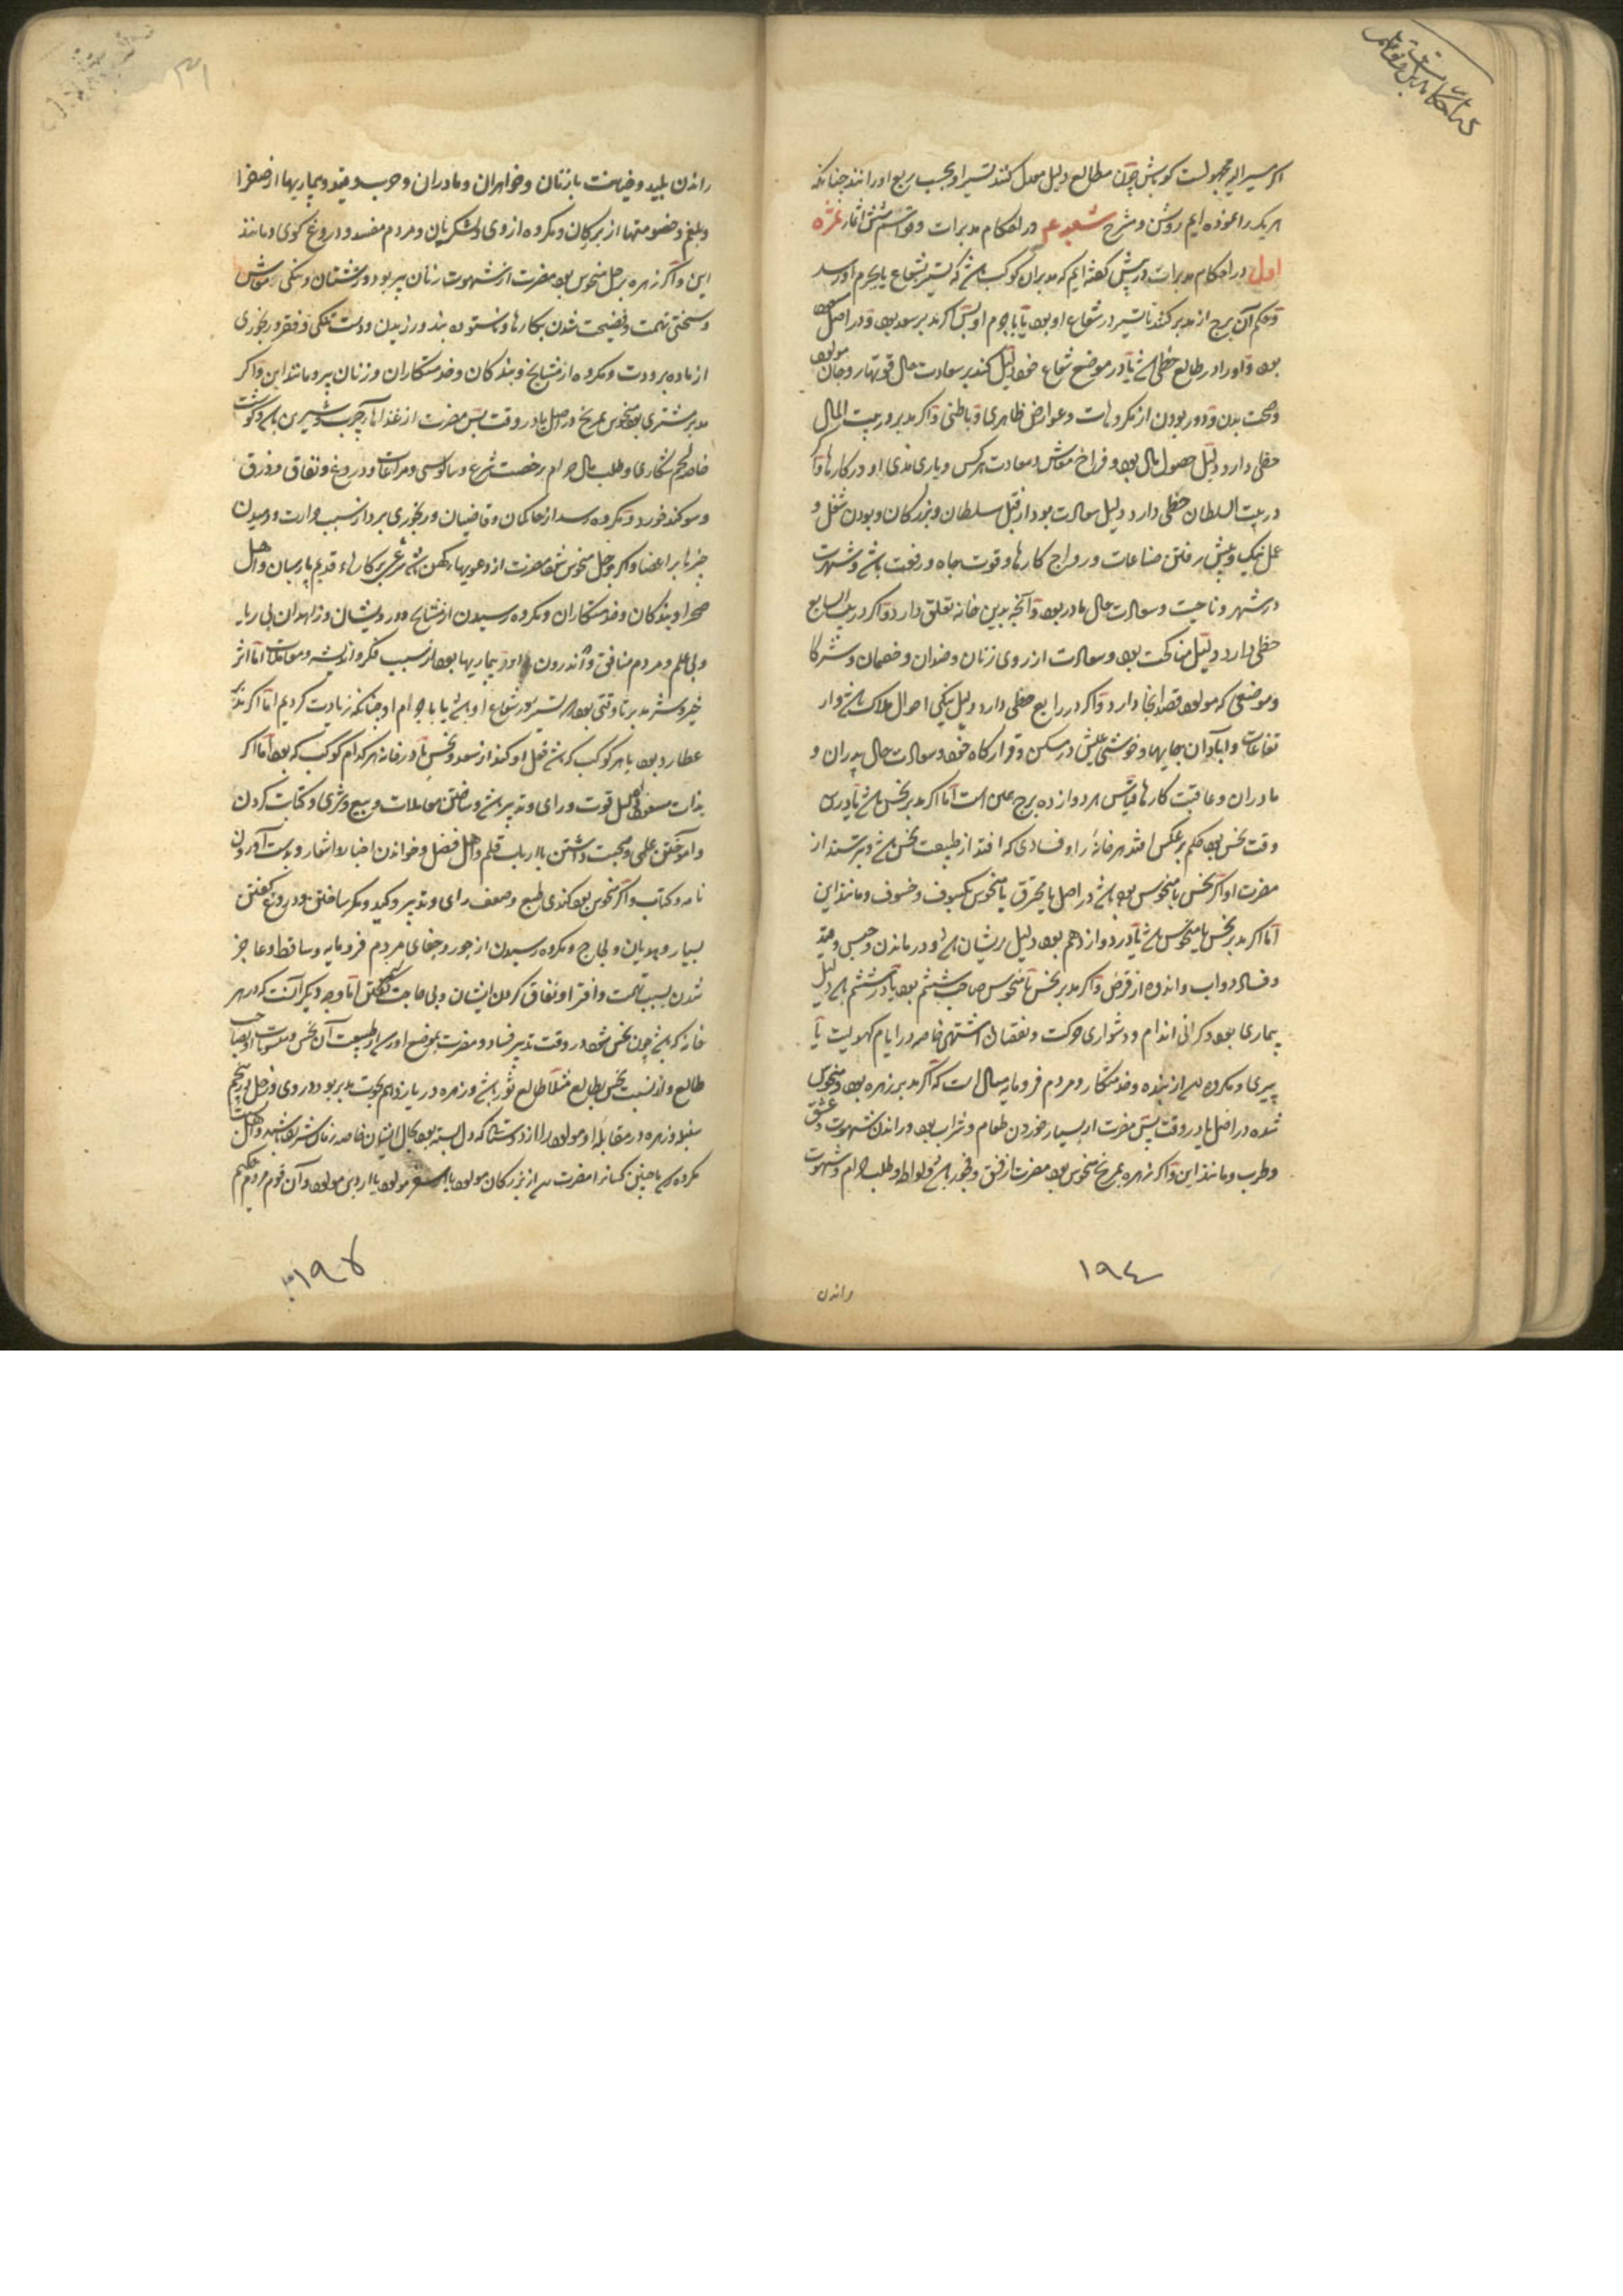 اکر مسیر الیه مجهولست کوکبش چون مطالع دلیل معدل کنند تسیر او بحسب مربع او رانند چنانکه
هریک را نموده ایم روشن و مشرح شعبه در احکام مدبرات و قواسم شش اثمار ثمره
اول در احکام مدبرات در پیش کفته ایم که مدبر آن کوکب باشد که تسیر بشعاع یا بجرم او رسد
و حکم آن برج از مدبر کنند تا تسیر در شعاع او بود یا با جرم او پس اکر مدبر سعد بود و در اصل
بود و او را در طالع حظی باشد یا در موضع شعاع خود دلیل کند بر سعادت حال قوتها و روح و جان مولود
و صحت بدن و دور بودن از مکروهات و عوارض ظاهری و باطنی و اکر مدبر در بیت المال
حظی دارد دلیل حصول مال بود و فراخ معاش و سعادت هر کس و یاری دادن او در کارها و اکر
در بیت السلطان حظی دارد دلیل سعادت بود از قبل سلطان و بزرکان و بودن شغل و
عمل نیک و پیش رفتن صناعات و رواج کارها و قوت جاه و رفعت باشد و شهرت
در شهر و ناحیت و سعادت حال مادر بود و آنچه بدین خانه تعلق دارد و اکر در بیت السابع
حظی دارد دلیل مناکحت بود و سعادت از روی زنان و ضدان و خصمان و شرکا
و موضعی که مولود قصد آنجا دارد و اکر در رابع حظی دارد دلیل نیکی احوال املاک باشد و ار
تفاعات و آبادان جایها و خوشی عیش در مسکن و قرارکاه خود و سعادت حال پدران و
مادران و عاقبت کارها قیاس هر دوازده برج همین است اما اکر مدبر نحس باشد یا درین
وقت نحس بود حکم بر عکس افتد هر خانه را و فسادی که افتد از طبیعت نحس باشد و بترسند از
مضرت او اکر نحس یا منحوس بود باشد در اصل یا محترق یا منحوس بکسوف و خسوف و مانند این
اما اکر مدبر نحس یا منحوس باشد یا در دوازدهم بود دلیل پریشان باشد و درماندن و حبس و قید
و فساد دواب و اندوه از قرض و اکر مدبر نحس یا منحوس صاحب ششم بود یا در ششم باشد دلیل
بیماری بود و کرانی اندام و دشواری حرکت و نقصان اشتهی خاصه در ایام کهولیت یا
پیری و مکروه رسد از بنده و خدمتکار و مردم فرومایه مثال است که اکر مدبر زهره بود و منحوس
شده در اصل یا در وقت پس مضرت از بسیار خوردن طعام و شراب بود و راندن شهوت و عشق
و طرب و مانند این و اکر زهره بمریخ منحوس بود مضرت از فسق و فجور باشد و لواط و طلب حرام و شهوت
راندن
۱۹٤
۳۱
راندن پلید و خیانت با زنان و خواهران و مادران و حرب و قید و بیماریها از صفرا
و بلغم و خصومتها از بزرکان و مکروه از روی لشکریان و مردم مفسد و دروغ کوی و مانند
این و اکر زهره بزحل منحوس بود مضرت از شهوت زنان پیر بود و زشتان و تنکی معاش
و سختی تهمت و فضیحت شدن بکارها و نستوده بند ورزیدن و دست تنکی و فقر و رنجوری
از ماده برودت و مکروه از مشایخ و بندکان و خدمتکاران و زنان پیر و مانند این و اکر
مدبر مشتری بود منحوس بمریخ در اصل یا در وقت پس مضرت از غذاها چرب و شیرین باشد و کوشت
خاصه لحم شکاری و طلب مال حرام برخصت شرع و سالوسی و مراعات و دروغ و نفاق و زرق
و سوکند خورد و مکروه رسد از حاکمان و قاضیان و رنجوری بردار سبب حرارت و رسیدن
جزها بر اعضا و اکر بزحل منحوس شود مضرت از دعویها کهن باشد شرعی بر کارهاء قدیم با رهبان و اهل
صحرا و بندکان و خدمتکاران و مکروه رسیدن از مشایخ و درویشان و زاهدان بی ریا
و بی علم و مردم منافق و اندرون و بیماریها بود از سبب فکر و اندیشه و معاملات اما اثر
خیر و شر مدبر تا وقتی بود که تسیر در شعاع او باشد یا با جرم او چنانکه زیادت کردیم اما اکر مدبر
عطارد بود با هر کوکب که باشد فعل او کند از سعد و نحس یا در خانه هر کدام کوکب که بود اما اکر
بذات مسعود بود دلیل قوت و رای و تدبیر باشد و ساختن معاملات و بیع و شری و کتابت کردن
و آموختن علمی و صحبت داشتن با ارباب قلم و اهل فضل و خواندن اخبار و اشعار و بدست آوردن
نامه و کتاب و اکر منحوس بود کندی طبع و ضعف رای و تدبیر و کید و مکر ساختن و دروغ کفتن
بسیار و هذیان و لجاج و مکروه رسیدن از جور و جفای مردم فرومایه و ساقط و عاجز
شدن بسبب تهمت و افترا و نفاق کردن ایشان و بی حاجت سخن کفتن اما وجه دیکر آنست که در هر
خانه که باشد چون نحس شود در وقت تدبیر فساد و مضرت بموضع او رسد از طبیعت آن نحس و منسوبات او بصاحب
طالع و از نسبت نحس بطالع مثلا طالع ثور باشد و زهره در یازدهم بحوت مدبر بود و روی زحل در پنجم
سنبله و زهره در مقابله او مولود را از دوستی که دل بسته بود بحال ایشان خاصه زنان شریف باشند و اهل
مکروه رسد با چنین کسان را مضرت رسد از بزرکان مولود یا مولود یا از دین مولود و آن قوم مردم حکیم
۱۹۵